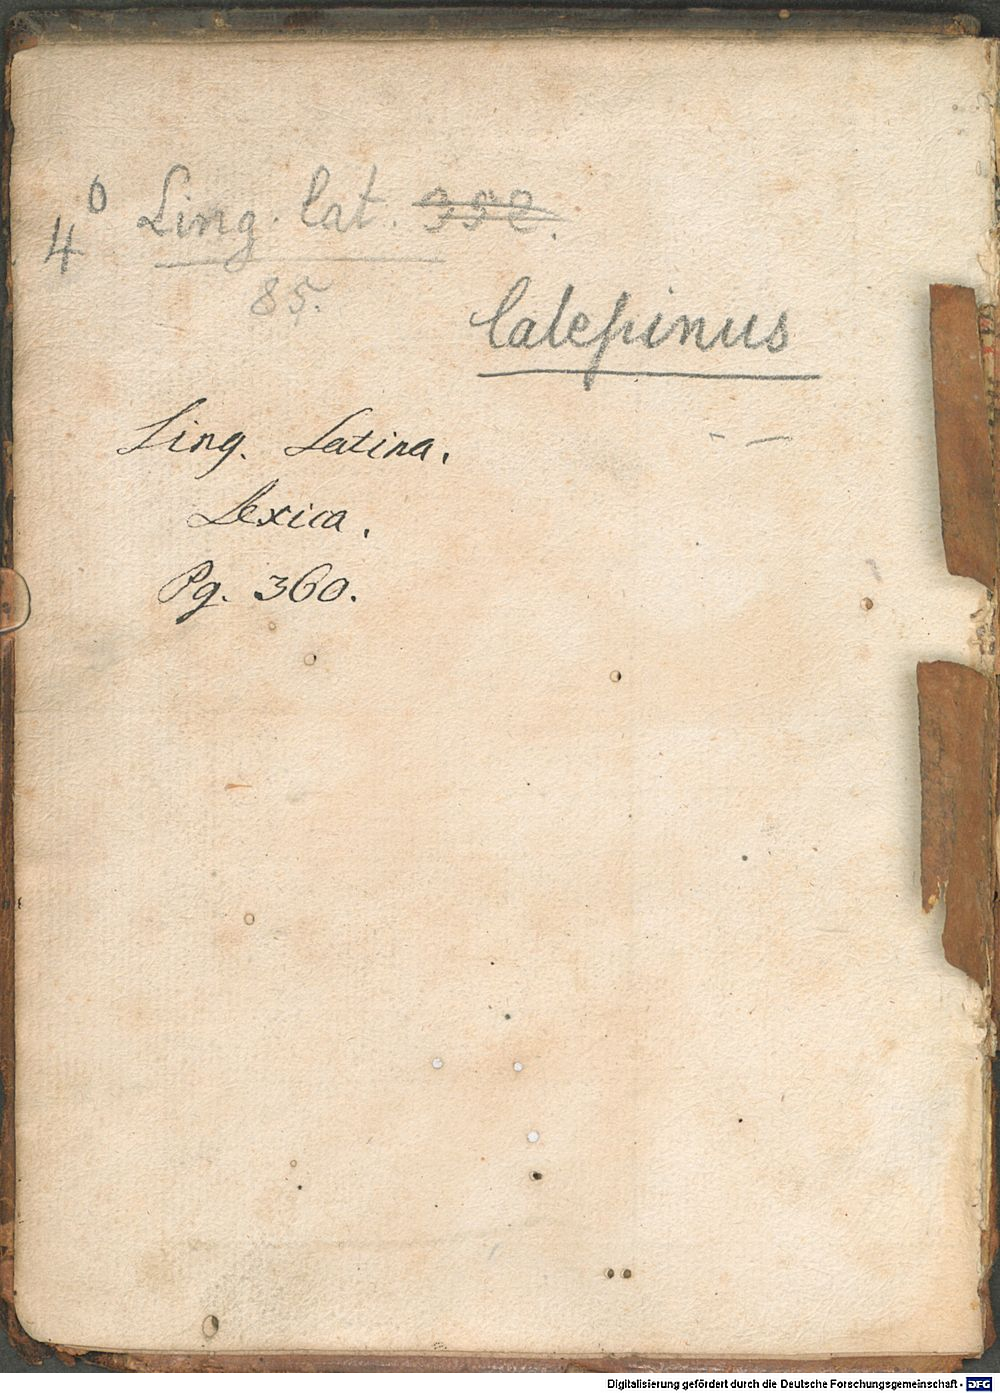 4⁰ Ling. lat. 352.
85.
Calepinus
Ling. Latina.
Lexica.
Pg. 360.
Digitalisierung gefördert durch die Deutsche Forschungsgemeinschaft - DFG